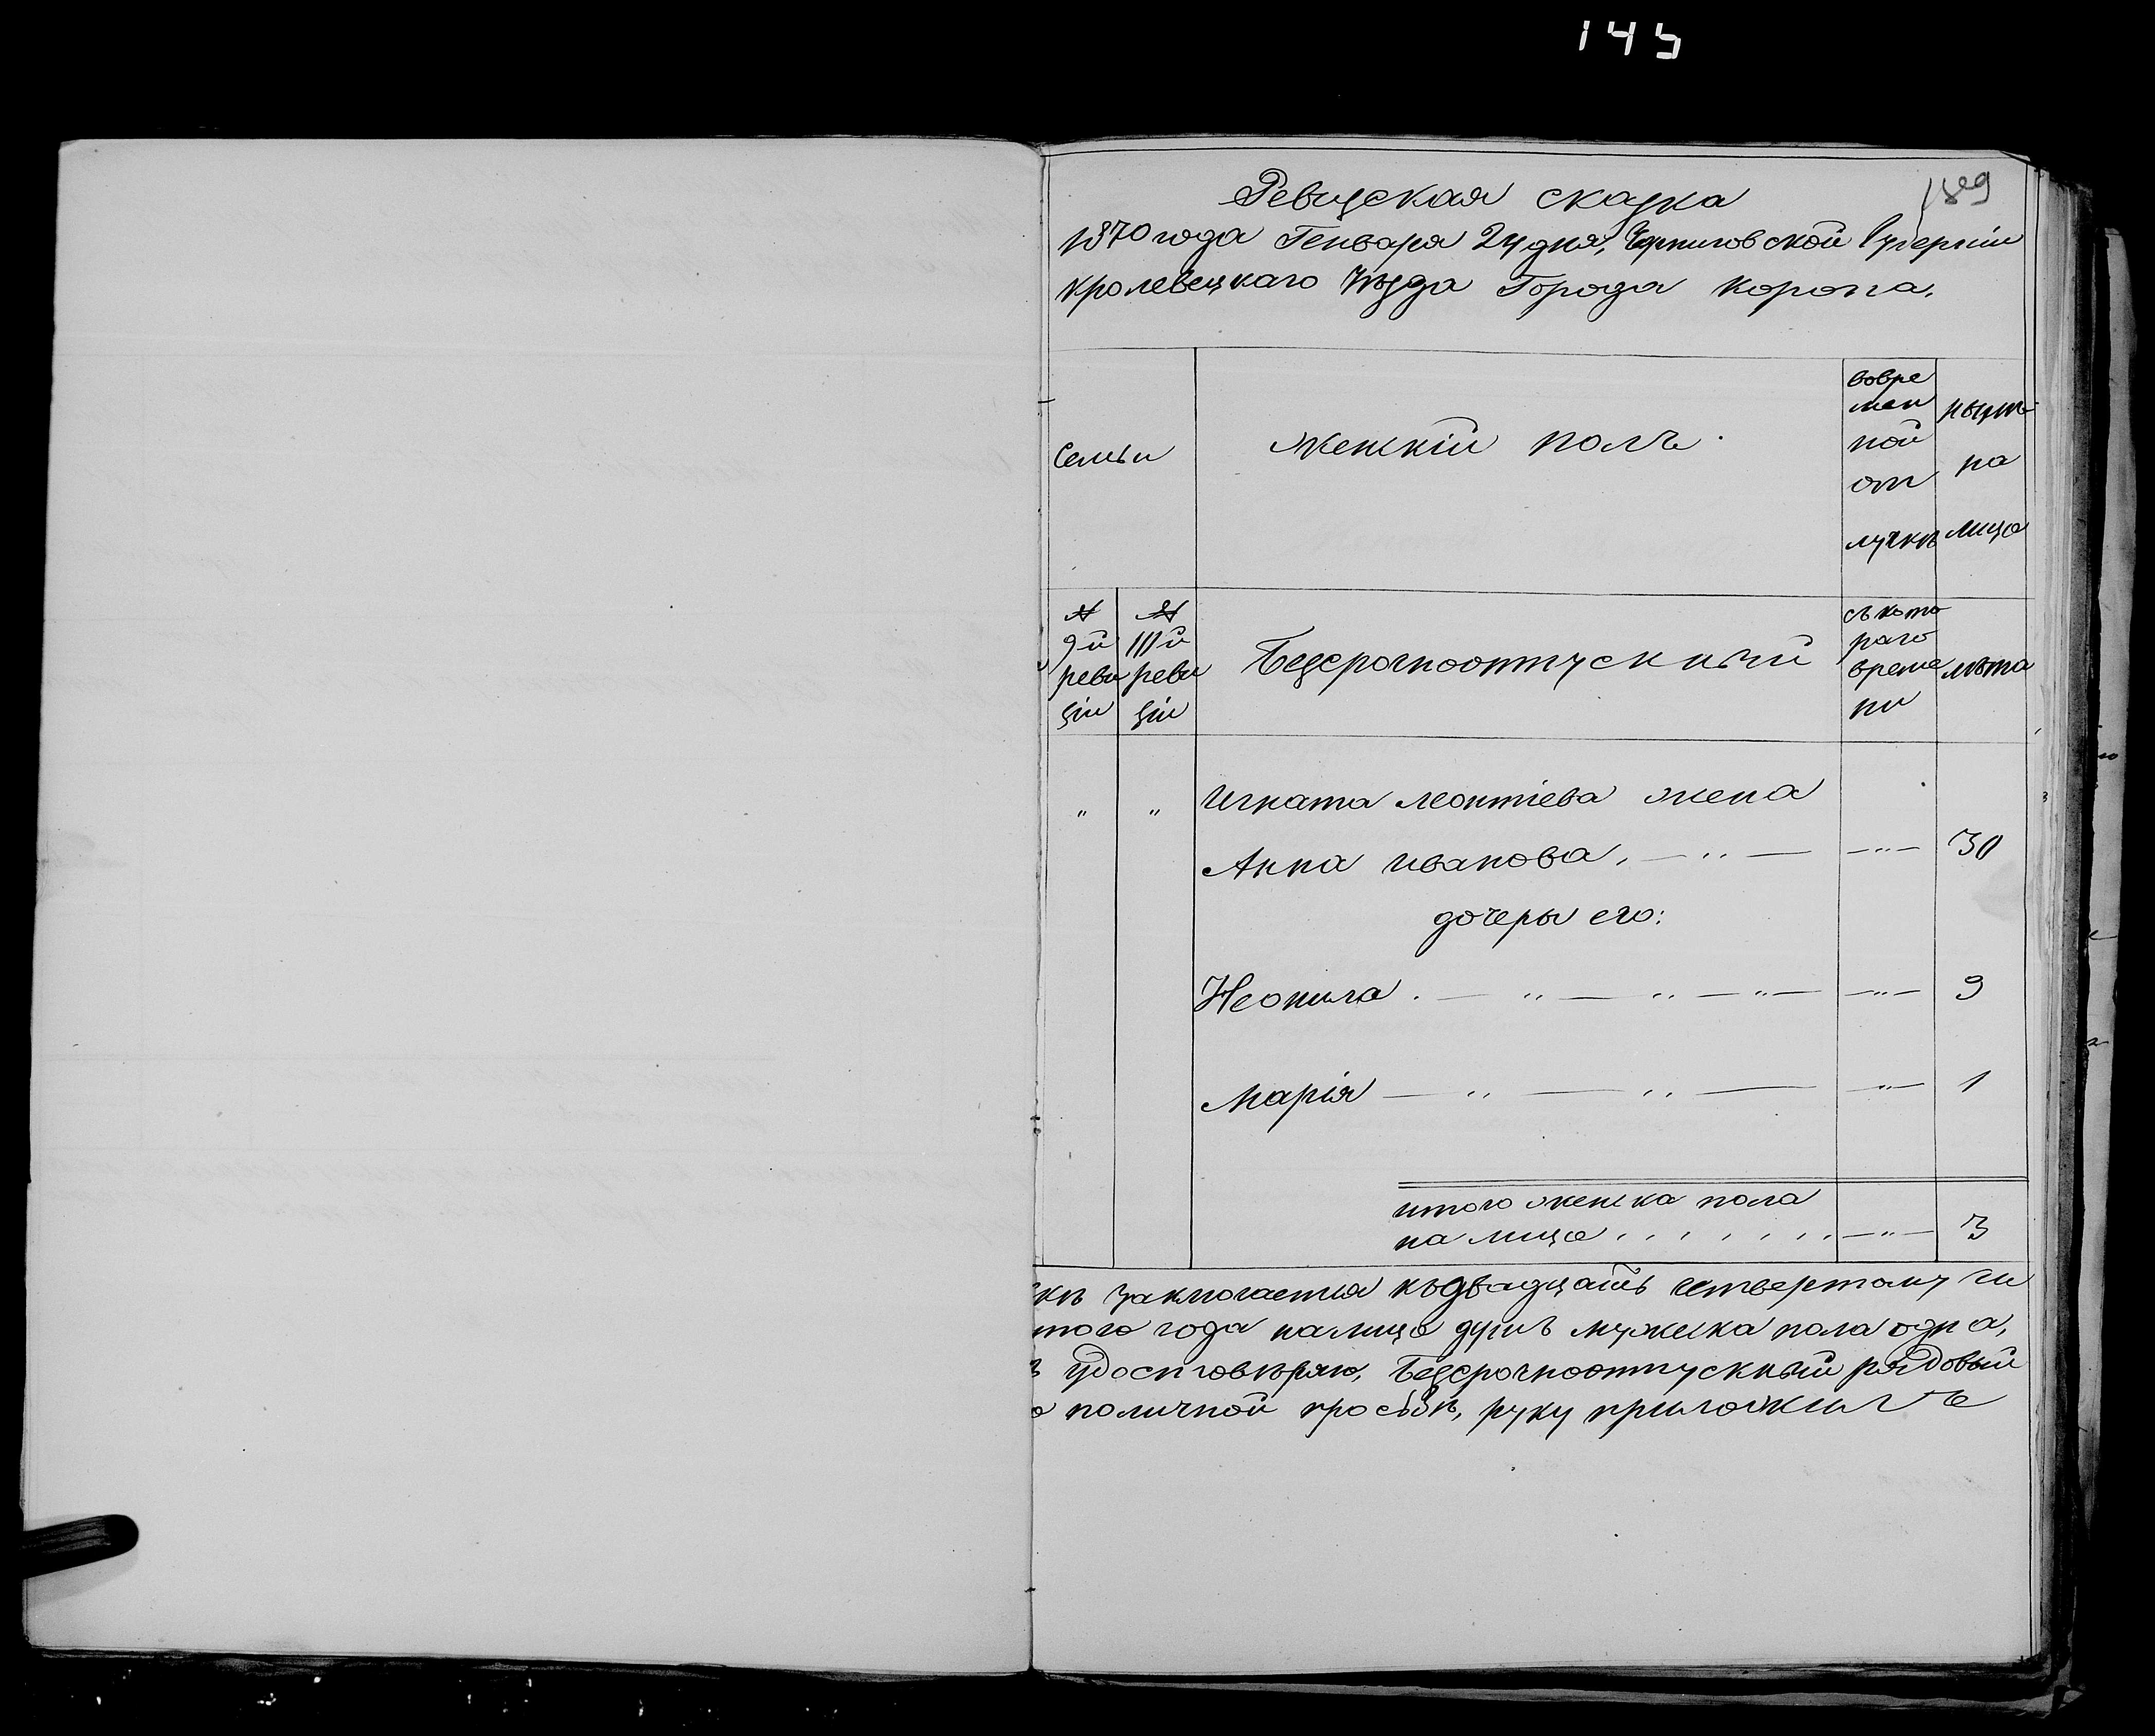 145
189
Ревизская сказка
1870 года Генваря 24 дня, Черниговской Губерніи
Кролевецкаго Уѣзда Города Коропа.
Семьи
Женскій полъ.
вовре
мен
ной
от
лучкѣ
нынѣ
на
лицо
№
9й
реви
зіи
№
10й
реви
зіи
Безсрочноотпускный
съ кото
раго
време
ни
лѣта
" " Игната Леонтіева жена
Анна Иванова, — " — — " — 30
дочеры его:
Неонила . — " — " — " — — " — 9
Марія — " — " — — " — 1
итого женска пола
на лицо . . . . . . . — " — 3
кѣ заключается къ двадцать четвертому чи
того года на лицо душъ мужеска пола одна,
ъ удостовѣряю, Безсрочноотпускный рядовый
о по личной просьбѣ, руку приложилъ